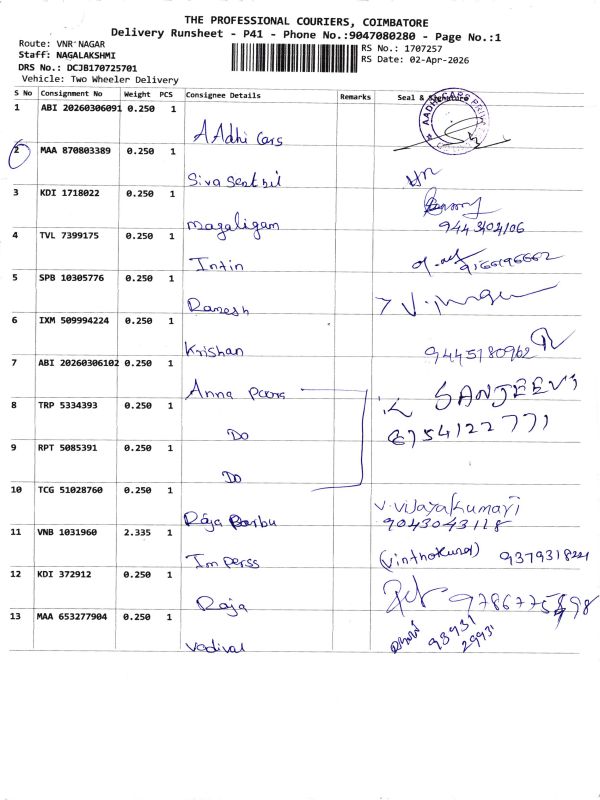 THE PROFESSIONAL COURIERS, COIMBATORE
Delivery Runsheet - P41 - Phone No.:9047080280 - Page No.:1
Route: VNR NAGAR
Staff: NAGALAKSHMI
DRS No.: DCJB170725701
Vehicle: Two Wheeler Delivery
RS No.: 1707257
RS Date: 02-Apr-2026
S No Consignment No Weight PCS Consignee Details Remarks Seal & Signature
1 ABI 20260306091 0.250 1 AAdhi Cars
2 MAA 870803389 0.250 1 Siva Senthil
3 KDI 1718022 0.250 1 Magaligam
4 TVL 7399175 0.250 1 Intin
5 SPB 10305776 0.250 1 Ramesh
6 IXM 509994224 0.250 1 Krishan 9445780962
7 ABI 20260306102 0.250 1 Anna Poorna SANJEEVI
8 TRP 5334393 0.250 1 Do 8754122771
9 RPT 5085391 0.250 1 Do
10 TCG 51028760 0.250 1 Raja Babu V. Vijayakumari
9043043118
11 VNB 1031960 2.335 1 Im perss
12 KDI 372912 0.250 1 Raja
13 MAA 653277904 0.250 1 Vadival 98931
29931